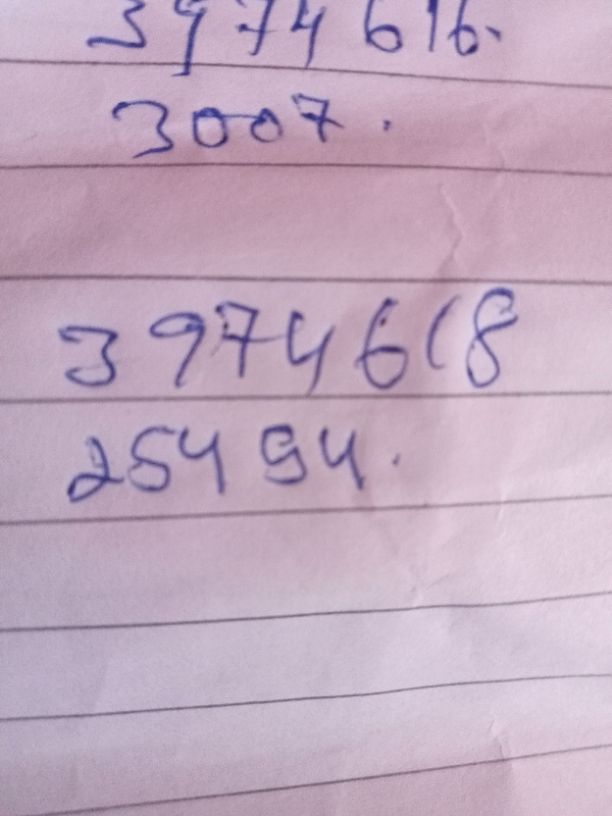 3974616.
3007.
3974618
25494.